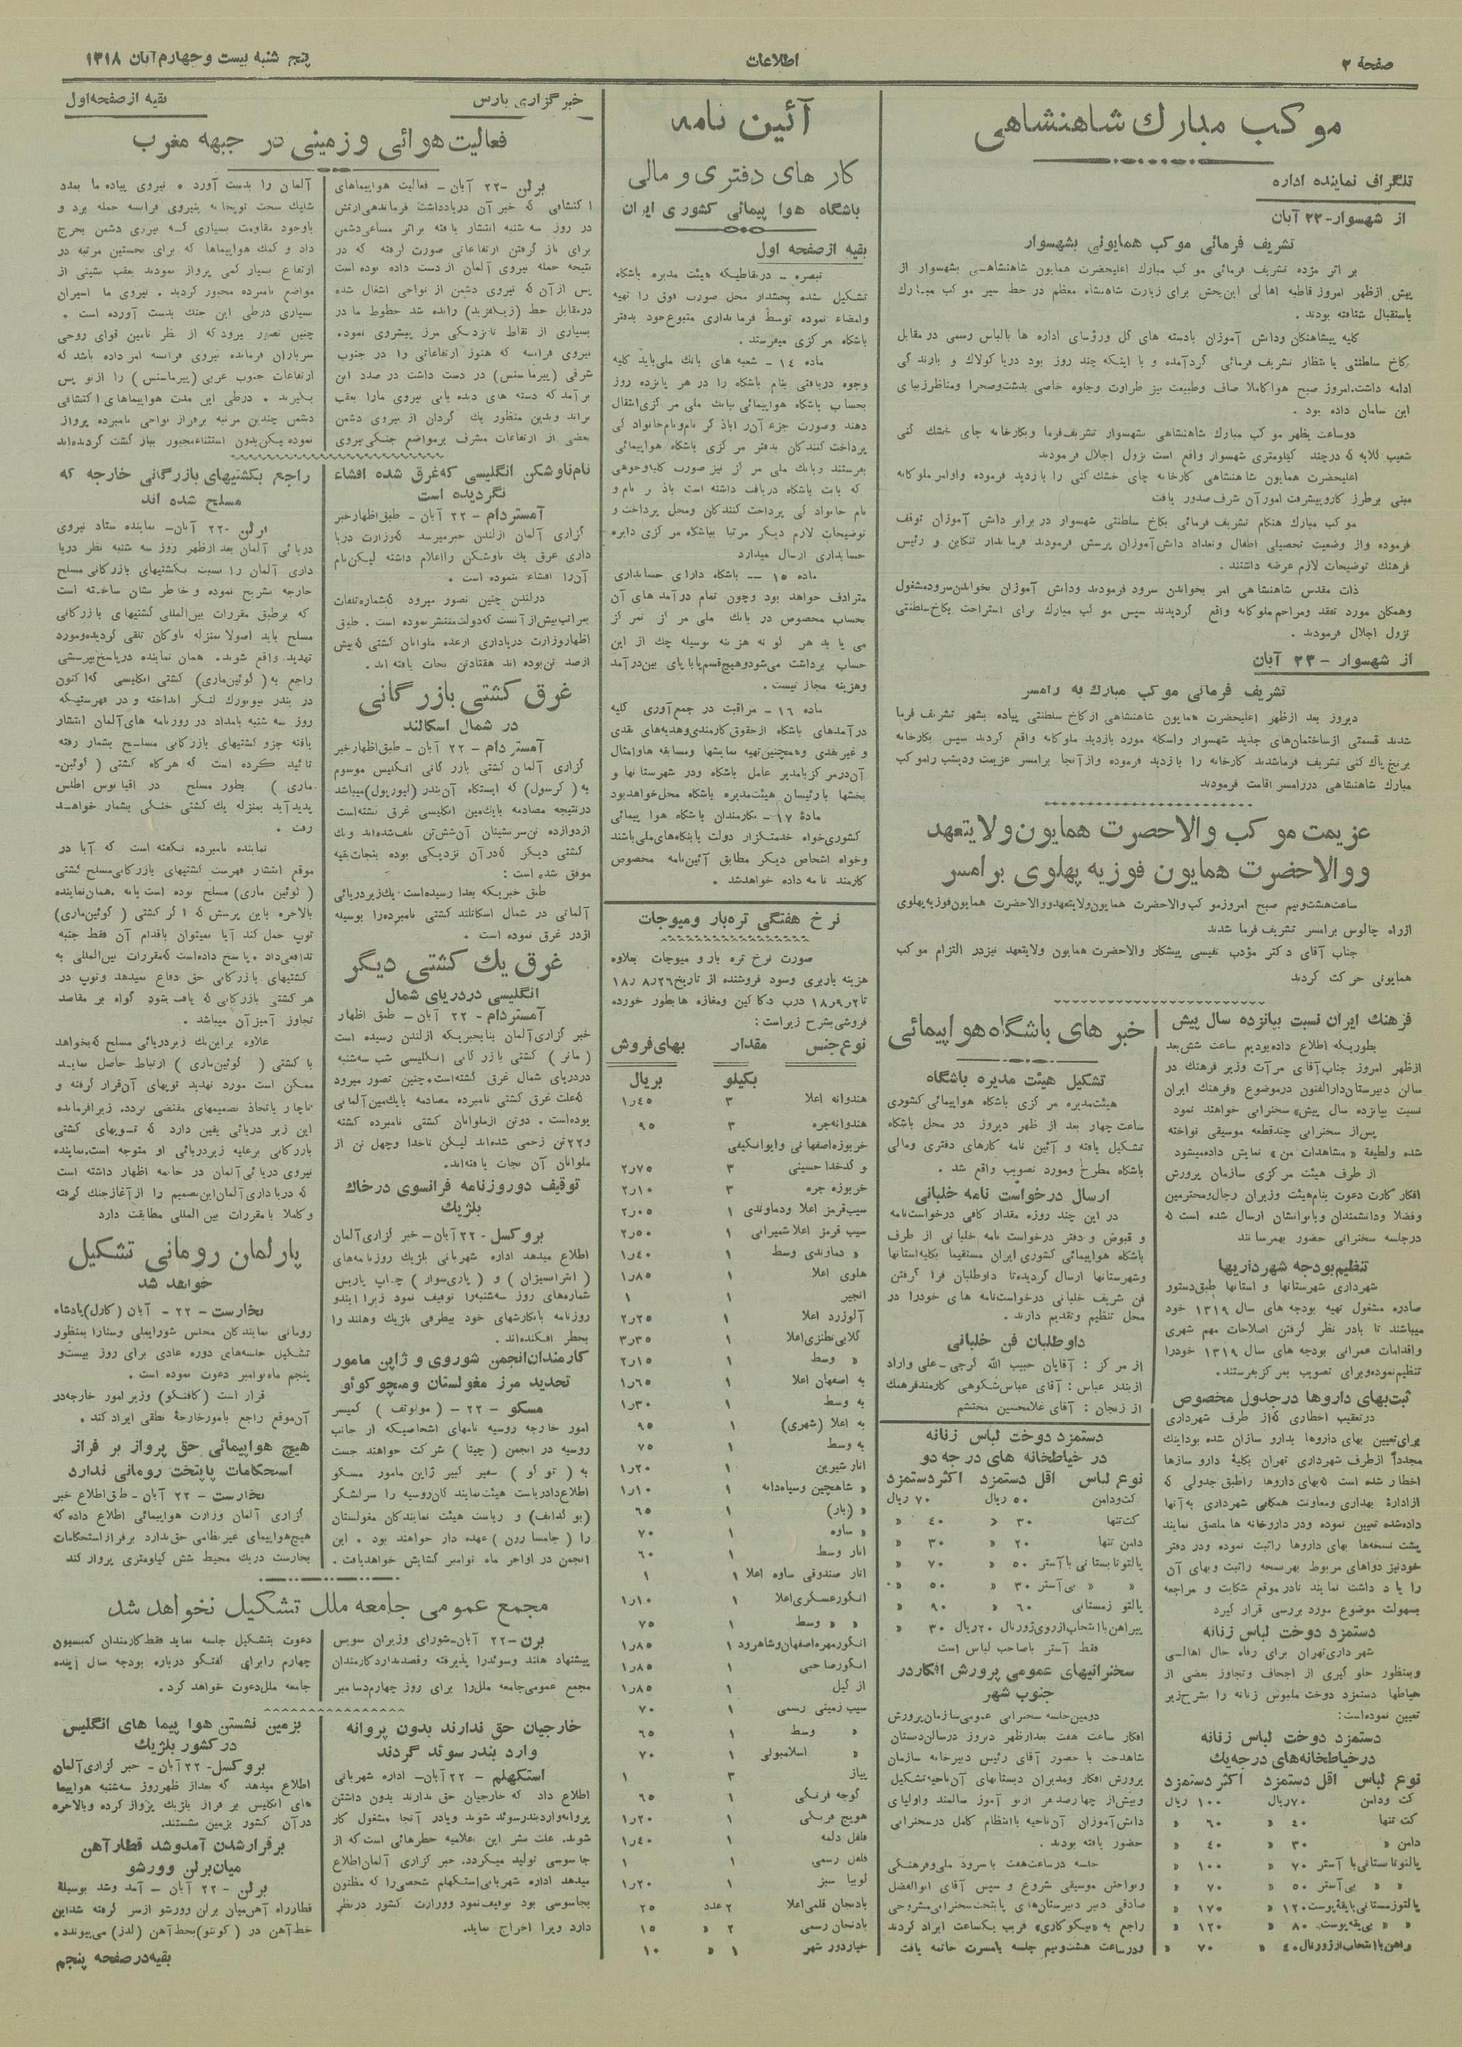 صفحهٔ ۲
اطلاعات
پنج شنبه بیست و چهارم آبان ۱۳۱۸
موکب مبارك شاهنشاهی
تلگراف نماینده اداره
از شهسوار - ۲۲ آبان
تشریف فرمائی موکب همایونی بشهسوار
بر اثر مژده تشریف فرمائی موکب مبارك اعلیحضرت همایون شاهنشاهی بشهسوار از
پیش ازظهر امروز قاطبه اهالی این بخش برای زیارت شاهنشاه معظم در خط سیر موکب مبارك
باستقبال شتافته بودند.
کلیه پیشاهنگان ودانش آموزان بادسته های گل ورؤسای اداره ها بالباس رسمی در مقابل
کاخ سلطنتی بانتظار تشریف فرمائی گردآمده و با اینکه چند روز بود دریا کولاك و بارندگی
ادامه داشت، امروز صبح هوا کاملا صاف وطبیعت نیز طراوت وجلوه خاصی بدشت وصحرا ومناظرزیبای
این سامان داده بود .
دوساعت بظهر موکب مبارك شاهنشاهی بشهسوار تشریف فرما وبکارخانه چای خشك کنی
شعیب کلایه که درچند کیلومتری شهسوار واقع است نزول اجلال فرمودند
اعلیحضرت همایون شاهنشاهی کارخانه چای خشك کنی را بازدید فرموده واوامر ملوکانه
مبنی برطرز کاروپیشرفت امورآن شرف صدور یافت
موکب مبارك هنگام تشریف فرمائی بکاخ سلطنتی شهسوار در برابر دانش آموزان توقف
فرموده واز وضعیت تحصیلی اطفال وتعداد دانش آموزان پرسش فرمودند فرماندار تنکابن و رئیس
فرهنگ توضیحات لازم عرضه داشتند.
ذات مقدس شاهنشاهی امر بخواندن سرود فرمودند ودانش آموزان بخواندن سرودمشغول
وهمگان مورد تفقد ومراحم ملوکانه واقع گردیدند سپس موکب مبارك برای استراحت بکاخ سلطنتی
نزول اجلال فرمودند .
از شهسوار - ۲۳ آبان
تشریف فرمائی موکب مبارك به رامسر
دیروز بعد ازظهر اعلیحضرت همایون شاهنشاهی ازکاخ سلطنتی پیاده بشهر تشریف فرما
شدند قسمتی ازساختمان‌های جدید شهسوار واسکله مورد بازدید ملوکانه واقع گردید سپس بکارخانه
برنج پاك کنی تشریف فرماشدند کارخانه را بازدید فرموده وازآنجا برامسر عزیمت ودیشب راموکب
مبارك شاهنشاهی دررامسر اقامت فرمودند
عزیمت موکب والاحضرت همایون ولایتعهد
ووالاحضرت همایون فوزیه پهلوی برامسر
ساعت هشت ونیم صبح امروزموکب والاحضرت همایون ولایتعهد ووالاحضرت همایون فوزیه پهلوی
ازراه چالوس برامسر تشریف فرما شدند
جناب آقای دکتر مؤدب نفیسی پیشکار والاحضرت همایون ولایتعهد نیزدر التزام موکب
همایونی حرکت کردند
فرهنگ ایران نسبت بپانزده سال پیش
بطوریکه اطلاع داده بودیم ساعت شش بعد
ازظهر امروز جناب آقای مرآت وزیر فرهنگ در
سالن دبیرستان دارالفنون درموضوع «فرهنگ ایران
نسبت بپانزده سال پیش» سخنرانی خواهند نمود
پس از سخنرانی چندقطعه موسیقی نواخته
شده ولطیفهٔ «مشاهدات من» نمایش داده میشود
از طرف هیئت مرکزی سازمان پرورش
افکار کارت دعوت بنام هیئت وزیران رجال ومحترمین
وفضلا ودانشمندان وبانوانشان ارسال شده است که
درجلسه سخنرانی حضور بهمرسانند
تنظیم بودجه شهرداریها
شهرداری شهرستانها و استانها طبق دستور
صادره مشغول تهیه بودجه های سال ۱۳۱۹ خود
میباشند تا بادر نظر گرفتن اصلاحات مهم شهری
واقدامات عمرانی بودجه های سال ۱۳۱۹ خودرا
تنظیم نموده وبرای تصویب بمرکز بفرستند.
ثبت بهای داروها درجدول مخصوص
درتعقیب اخطاری که از طرف شهرداری
برای تعیین بهای داروها بدارو سازان شده بود اینك
مجدداً ازطرف شهرداری تهران بکلیهٔ دارو سازها
اخطار شده است که بهای داروها راطبق جدولی که
ازادارهٔ بهداری ومعاونت همگانی شهرداری به آنها
داده شده تعیین نموده ودر داروخانه ها ملصق نمایند
پشت نسخه‌ها بهای داروها راثبت نموده ودر دفتر
خودنیز دواهای مربوط بهر نسخه راثبت وبهای آن
را یاد داشت نمایند تادر موقع شکایت و مراجعه
بسهولت موضوع مورد بررسی قرار گیرد
دستمزد دوخت لباس زنانه
شهرداری تهران برای رفاه حال اهالی
وبمنظور جلوگیری از اجحاف وتجاوز بعضی از
خیاطها دستمزد دوخت ملبوس زنانه را بشرح زیر
تعیین نموده است:
دستمزد دوخت لباس زنانه
درخیاطخانه‌های درجه یك
نوع لباس اقل دستمزد اکثر دستمزد
کت ودامن ۷۰ ریال ۱۰۰ ریال
کت تنها ۴۰ « ۶۰ «
دامن « ۳۰ « ۴۰ «
پالتو تابستانی با آستر ۷۰ « ۱۰۰ «
« « بی آستر ۵۰ « ۷۰ «
پالتو زمستانی با یقهٔ پوست ۱۲۰ « ۱۷۰ «
« « بی یقه پوست ۸۰ « ۱۲۰ «
راهن با انتخاب از ژورنال ۴۰ « ۷۰ «
خبر های باشگاه هواپیمائی
تشکیل هیئت مدیره باشگاه
هیئت مدیره مرکزی باشگاه هواپیمائی کشوری
ساعت چهار بعد از ظهر دیروز در محل باشگاه
تشکیل یافته و آئین نامه کارهای دفتری ومالی
باشگاه مطرح ومورد تصویب واقع شد .
ارسال درخواست نامه خلبانی
در این چند روزه مقدار کافی درخواست نامه
و قبوض و دفتر درخواست نامه خلبانی از طرف
باشگاه هواپیمائی کشوری ایران مستقیما بکلیه استانها
وشهرستانها ارسال گردیده تا داوطلبان فرا گرفتن
فن شریف خلبانی درخواست نامه های خودرا در
محل تنظیم وتقدیم دارند.
داوطلبان فن خلبانی
از مرکز : آقایان حبیب الله گرجی - علی واراد
ازبندر عباس : آقای عباس شکوهی کارمند فرهنگ
از زنجان : آقای غلامحسین محتشم
دستمزد دوخت لباس زنانه
در خیاطخانه های درجه دو
نوع لباس اقل دستمزد اکثر دستمزد
کت ودامن ۵۰ ریال ۷۰ ریال
کت تنها ۳۰ « ۴۰ «
دامن تنها ۲۰ « ۳۰ «
پالتو تابستانی با آستر ۵۰ « ۷۰ «
« « بی آستر ۳۰ « ۵۰ «
پالتو زمستانی ۶۰ « ۹۰ «
پیراهن با انتخاب از روی ژورنال ۲۰ ریال ۳۰ «
فقط آستر باصاحب لباس است
سخنرانیهای عمومی پرورش افکار در
جنوب شهر
دومین جلسه سخنرانی عمومی سازمان پرورش
افکار ساعت هفت بعدازظهر دیروز درسالن دبستان
شاهدخت با حضور آقای رئیس دبیرخانه سازمان
پرورش افکار ومدیران دبستانهای آن ناحیه تشکیل
وبیش از چهارصد نفر از نو آموز سالمند واولیای
دانش آموزان آن ناحیه با انتظام کامل در سخنرانی
حضور یافته بودند .
جلسه در ساعت هفت با سرود ملی و فرهنگی
ونواختن موسیقی شروع و سپس آقای ابوالفضل
صادقی دبیر دبیرستان‌های پایتخت سخنرانی مشروحی
راجع به «نیکوکاری» قریب یکساعت ایراد کردند
ودر ساعت هشت ونیم جلسه با مسرت خاتمه یافت
آئین نامه
کار های دفتری و مالی
باشگاه هوا پیمائی کشوری ایران
بقیه از صفحه اول
تبصره - درنقاطیکه هیئت مدیره باشگاه
تشکیل نشده بخشدار محل صورت فوق را تهیه
وامضاء نموده توسط فرمانداری متبوع خود بدفتر
باشگاه مرکزی میفرستد.
ماده ۱۴ - شعبه های بانك ملی باید کلیه
وجوه دریافتی بنام باشگاه را در هر پانزده روز
بحساب باشگاه هواپیمائی ببانك ملی مرکزی انتقال
دهند وصورت جزء آن را با ذکر نام ونام خانوادگی
پرداخت کنندگان بدفتر مرکزی باشگاه هواپیمائی
بفرستند وبانك ملی مرکز نیز صورت کلیه وجوهی
که بابت باشگاه دریافت داشته است با ذکر نام و
نام خانوادگی پرداخت کنندگان ومحل پرداخت و
توضیحات لازم دیگر مرتبا بباشگاه مرکزی دایره
حسابداری ارسال میدارد
ماده ۱۵ — باشگاه دارای حسابداری
مترادف خواهد بود وچون تمام درآمدهای آن
بحساب مخصوص در بانك ملی مرکز تمرکز
می یابد هر گونه هزینه بوسیله چك از این
حساب برداشت می‌شود وهیچ قسم پایاپای بین درآمد
وهزینه مجاز نیست.
ماده ۱۶ - مراقبت در جمع آوری کلیه
درآمدهای باشگاه ازحقوق کارمندی وهدیه‌های نقدی
و غیر نقدی وهمچنین تهیه نمایشها ومسابقه ها وامثال
آن درمرکز بامدیر عامل باشگاه ودر شهرستانها و
بخشها با رئیسان هیئت مدیره باشگاه محل خواهد بود
مادهٔ ۱۷ - بکارمندان باشگاه هوا پیمائی
کشوری خواه خدمتگزار دولت یا بنگاه‌های ملی باشند
وخواه اشخاص دیگر مطابق آئین نامه مخصوص
کارمند نامه داده خواهد شد .
نرخ هفتگی تره‌بار ومیوجات
صورت نرخ تره بار و میوجات بعلاوه
هزینه باربری وسود فروشنده از تاریخ ۲۶ر۸ر۱۸
تا ۲ر۹ر۱۸ درب دکاکین ومغازه ها بطور خورده
فروشی بشرح زیر است:
نوع جنس مقدار بهای فروش
بکیلو بریال
هندوانه اعلا ۳ ۱٫۴۵
هندوانه جره ۳ ۹۵
خربوزه اصفهانی وایوانکیفی
و کدخدا حسینی ۳ ۲٫۷۵
خربوزه جره ۳ ۲٫۱۰
سیب قرمز اعلا ودماوندی ۱ ۲٫۰۵
سیب قرمز اعلا شمیرانی ۱ ۲٫۵۰
« دماوندی وسط ۱ ۱٫۴۰
هلوی اعلا ۱ ۱٫۸۵
انجیر ۱ ۱
آلوزرد اعلا ۱ ۲٫۲۵
گلابی نطنزی اعلا ۱ ۳٫۳۵
« « وسط ۱ ۲٫۱۵
به اصفهان اعلا ۱ ۱٫۶۵
به وسط ۱ ۱٫۳۰
به اعلا (شهری) ۱ ۹۵
به وسط ۱ ۷۵
انار شیرین ۱ ۱٫۲۰
« شاهچین وسیاه دانه ۱ ۱٫۱۰
« (بار) ۱ ۶۵
« ساوه ۱ ۷۰
انار وسط ۱ ۶۰
انار صندوقی ساوه اعلا ۱ ۱
انگور عسگری اعلا ۱ ۱٫۱۰
« « وسط ۱ ۷۵
انگور مهره اصفهان وشاهرود ۱ ۱٫۸۵
انگور صاحبی ۱ ۱٫۸۵
ازگیل ۱ ۱٫۸۵
سیب زمینی رسمی ۱ ۷۰
« وسط ۱ ۶۵
« اسلامبولی ۱ ۷۰
پیاز ۳ ۱
گوجه فرنگی ۱ ۶۵
هویج فرنگی ۱ ۱٫۲۰
فلفل دلمه ۱ ۱٫۴۰
فلفل رسمی ۱ ۱
لوبیا سبز ۱ ۱٫۲۰
بادنجان قلمی اعلا ۲ عدد ۲۵
بادنجان رسمی ۲ « ۱۵
خیار دور شهر ۱ « ۱۰
خبرگزاری پارس
بقیه از صفحه اول
فعالیت هوائی و زمینی در جبهه مغرب
برلن - ۲۲ آبان - فعالیت هواپیماهای
اکتشافی که خبر آن دریادداشت فرماندهی ارتش
در روز سه شنبه انتشار یافته براثر مساعی دشمن
برای باز گرفتن ارتفاعاتی صورت گرفته که در
نتیجه حمله نیروی آلمان از دست داده بوده است
پس از آن که نیروی دشمن از نواحی اشغال شده
درمقابل خط (زیگفرید) رانده شد خطوط ما در
بسیاری از نقاط تا نزدیکی مرز پیشروی نموده.
نیروی فرانسه که هنوز ارتفاعاتی را در جنوب
شرقی (پیرماسنس) در دست داشت در صدد این
برآمد که دسته های دیده بانی نیروی مارا بعقب
براند وبدین منظور یك گردان از نیروی دشمن
بعضی از ارتفاعات مشرف برمواضع جنگی نیروی
آلمان را بدست آورد . نیروی پیاده ما بعدد
شلیك سخت توپخانه به نیروی فرانسه حمله برد و
باوجود مقاومت بسیاری که نیروی دشمن بخرج
داد و کمك هواپیماها که برای نخستین مرتبه در
ارتفاع بسیار کمی پرواز نمودند بعقب نشینی از
مواضع نامبرده مجبور گردید . نیروی ما اسیران
بسیاری درطی این جنك بدست آورده است .
چنین تصور میرود که از نظر تامین قوای روحی
سربازان فرمانده نیروی فرانسه امر داده باشد که
ارتفاعات جنوب غربی (پیرماسنس) را ازنو پس
بگیرند . درطی این مدت هواپیماهای اکتشافی
دشمن چندین مرتبه برفراز نواحی نامبرده پرواز
نموده لیکن بدون استثناء مجبور بباز گشت گردیده‌اند
نام ناوشکن انگلیسی که غرق شده افشاء
نگردیده است
آمستردام - ۲۲ آبان - طبق اظهار خبر
گزاری آلمان ازلندن خبر میرسد که وزارت دریا
داری غرق یك ناوشکن را اعلام داشته لیکن نام
آن را افشاء ننموده است .
درلندن چنین تصور میرود که شماره تلفات
بمراتب بیش از آنست که دولت منتشر نموده است . طبق
اظهار وزارت دریاداری ازعده ملوانان کشتی که بیش
ازصد تن بوده اند هفتاد تن نجات یافته اند.
غرق کشتی بازرگانی
در شمال اسکاتلند
آمستردام - ۲۲ آبان - طبق اظهار خبر
گزاری آلمان کشتی بازرگانی انگلیس موسوم
به (کرسول) که ایستگاه آن بندر (لیورپول) میباشد
درنتیجه مصادمه بایك مین انگلیسی غرق گشته است
ازدوازده تن سرنشینان آن شش تن تلف شده اند ویك
کشتی دیگر که در آن نزدیکی بوده بنجات بقیه
موفق شده است :
طبق خبریکه بعدا رسیده است یك زیر دریائی
آلمانی در شمال اسکاتلند کشتی نامبرده را بوسیله
اژدر غرق نموده است .
غرق یك کشتی دیگر
انگلیسی دردریای شمال
آمستردام - ۲۲ آبان - طبق اظهار
خبر گزاری آلمان بنا بخبریکه از لندن رسیده است
(مانر) کشتی بازرگانی انگلیسی شب سه شنبه
دردریای شمال غرق گشته است. چنین تصور میرود
که علت غرق کشتی نامبرده مصادمه بایك مین آلمانی
بوده است . دوتن از ملوانان کشتی نامبرده کشته
و۲۲ تن زخمی شده اند لیکن ناخدا وچهل تن از
ملوانان آن نجات یافته اند.
توقیف دو روزنامه فرانسوی درخاك
بلژیك
بروکسل - ۲۲ آبان - خبر گزاری آلمان
اطلاع میدهد اداره شهربانی بلژیك روزنامه های
(انتراسیژان) و (پاری‌سوار) چاپ پاریس
شماره‌های روز سه شنبه را توقیف نمود زیرا این دو
روزنامه بانگارشهای خود بیطرفی بلژیك وهلند را
بخطر افکنده اند.
کارمندان انجمن شوروی و ژاپن مامور
تحدید مرز مغولستان ومنچوکوئو
مسکو - ۲۲ - (مولوتف) کمیسر
امور خارجه روسیه نامهای اشخاصیکه از جانب
روسیه در انجمن (چیتا) شرکت خواهند جست
به (توگو) سفیر کبیر ژاپن مامور مسکو
اطلاع دادریاست هیئت نمایندگان روسیه را سرلشگر
(بوگدانف) و ریاست هیئت نمایندگان مغولستان
را (جامسارون) عهده دار خواهند بود . این
انجمن در اواخر ماه نوامبر گشایش خواهد یافت.
راجع بکشتیهای بازرگانی خارجه که
مسلح شده اند
برلن - ۲۲ آبان - نماینده ستاد نیروی
دریائی آلمان بعد ازظهر روز سه شنبه نظر دریا
داری آلمان را نسبت بکشتیهای بازرگانی مسلح
خارجه تشریح نموده و خاطر نشان ساخته است
که برطبق مقررات بین‌المللی کشتیهای بازرگانی
مسلح باید اصولا بمنزله ناوگان تلقی گردیده ومورد
تهدید واقع شوند. همان نماینده درپاسخ پرسشی
راجع به (کوئین‌ماری) کشتی انگلیسی که اکنون
در بندر نیویورك لنگر انداخته و در فهرستیکه
روز سه شنبه بامداد در روزنامه های آلمان انتشار
یافته جزو کشتیهای بازرگانی مسلح بشمار رفته
تائید کرده است که هرگاه کشتی (کوئین-
ماری) بطور مسلح در اقیانوس اطلس
پدید آید بمنزله یك کشتی جنگی بشمار خواهد
رفت .
نماینده نامبرده نگفته است که آیا در
موقع انتشار فهرست کشتیهای بازرگانی مسلح کشتی
(کوئین ماری) مسلح بوده است یا نه . همان نماینده
بالاخره باین پرسش که اگر کشتی (کوئین‌ماری)
توپ حمل کند آیا نمیتوان باقدام آن فقط جنبه
تدافعی داد . پاسخ داده است که مقررات بین‌المللی به
کشتیهای بازرگانی حق دفاع نمیدهد وتوپ در
هر کشتی بازرگانی که یافت بشود گواه بر مقاصد
تجاوز آمیز آن میباشد .
علاوه براین یك زیر دریائی مسلح که بخواهد
با کشتی (کوئین‌ماری) ارتباط حاصل نماید
ممکن است مورد تهدید توپهای آن قرار گرفته و
ناچار باتخاذ تصمیمهای مقتضی گردد. زیرا فرمانده
این زیر دریائی یقین دارد که توپهای کشتی
بازرگانی برعلیه زیردریائی او متوجه است. نماینده
نیروی دریائی آلمان در خاتمه اظهار داشته است
که دریاداری آلمان این تصمیم را از آغاز جنگ گرفته
و کاملا با مقررات بین المللی مطابقت دارد
پارلمان رومانی تشکیل
خواهد شد
بخارست - ۲۲ - آبان (کارل) پادشاه
رومانی نمایندگان مجلس شورایملی وسنارا بمنظور
تشکیل جلسه‌های دوره عادی برای روز بیست و
پنجم ماه نوامبر دعوت نموده است .
قرار است (گافنکو) وزیر امور خارجه در
آن موقع راجع بامور خارجهٔ نطقی ایراد کند .
هیچ هواپیمائی حق پرواز بر فراز
استحکامات پایتخت رومانی ندارد
بخارست - ۲۲ آبان - طبق اطلاع خبر
گزاری آلمان وزارت هواپیمائی اطلاع داده که
هیچ هواپیمای غیر نظامی حق ندارد برفراز استحکامات
بخارست دریك محیط شش کیلومتری پرواز کند
مجمع عمومی جامعه ملل تشکیل نخواهد شد
برن - ۲۲ آبان - شورای وزیران سویس
پیشنهاد هلند وسوئد را پذیرفته وقصد ندارد کارمندان
مجمع عمومی جامعه ملل را برای روز چهارم دسامبر
دعوت بتشکیل جلسه نماید فقط کارمندان کمیسیون
چهارم رابرای گفتگو درباره بودجه سال آینده
جامعه ملل دعوت خواهد کرد .
خارجیان حق ندارند بدون پروانه
وارد بندر سوئد گردند
استکهلم - ۲۲ آبان - اداره شهربانی
اطلاع داد که خارجیان حق ندارند بدون داشتن
پروانه وارد بندر سوئد شوند ویا در آنجا مشغول کار
شوند. علت نشر این اعلامیه خطرهائی است که از
جاسوسی تولید میگردد. خبر گزاری آلمان اطلاع
میدهد اداره شهربانی استکهلم شخصی را که مظنون
بجاسوسی بود توقیف نمود ووزارت کشور در نظر
دارد ویرا اخراج نماید.
بزمین نشستن هوا پیما های انگلیس
در کشور بلژیك
بروکسل - ۲۲ آبان - خبر گزاری آلمان
اطلاع میدهد که بعداز ظهر روز سه شنبه هواپیما
های انگلیس بر فراز بلژیك پرواز کرده وبالاخره
درآن کشور بزمین نشستند.
برقرار شدن آمدوشد قطار آهن
میان برلن وورشو
برلن - ۲۲ آبان - آمد وشد بوسیلهٔ
قطارراه آهن میان برلن وورشو از سر گرفته شد این
خط آهن در (کوتنو) بخط آهن (لدز) می‌پیوندد.
بقیه در صفحه پنجم